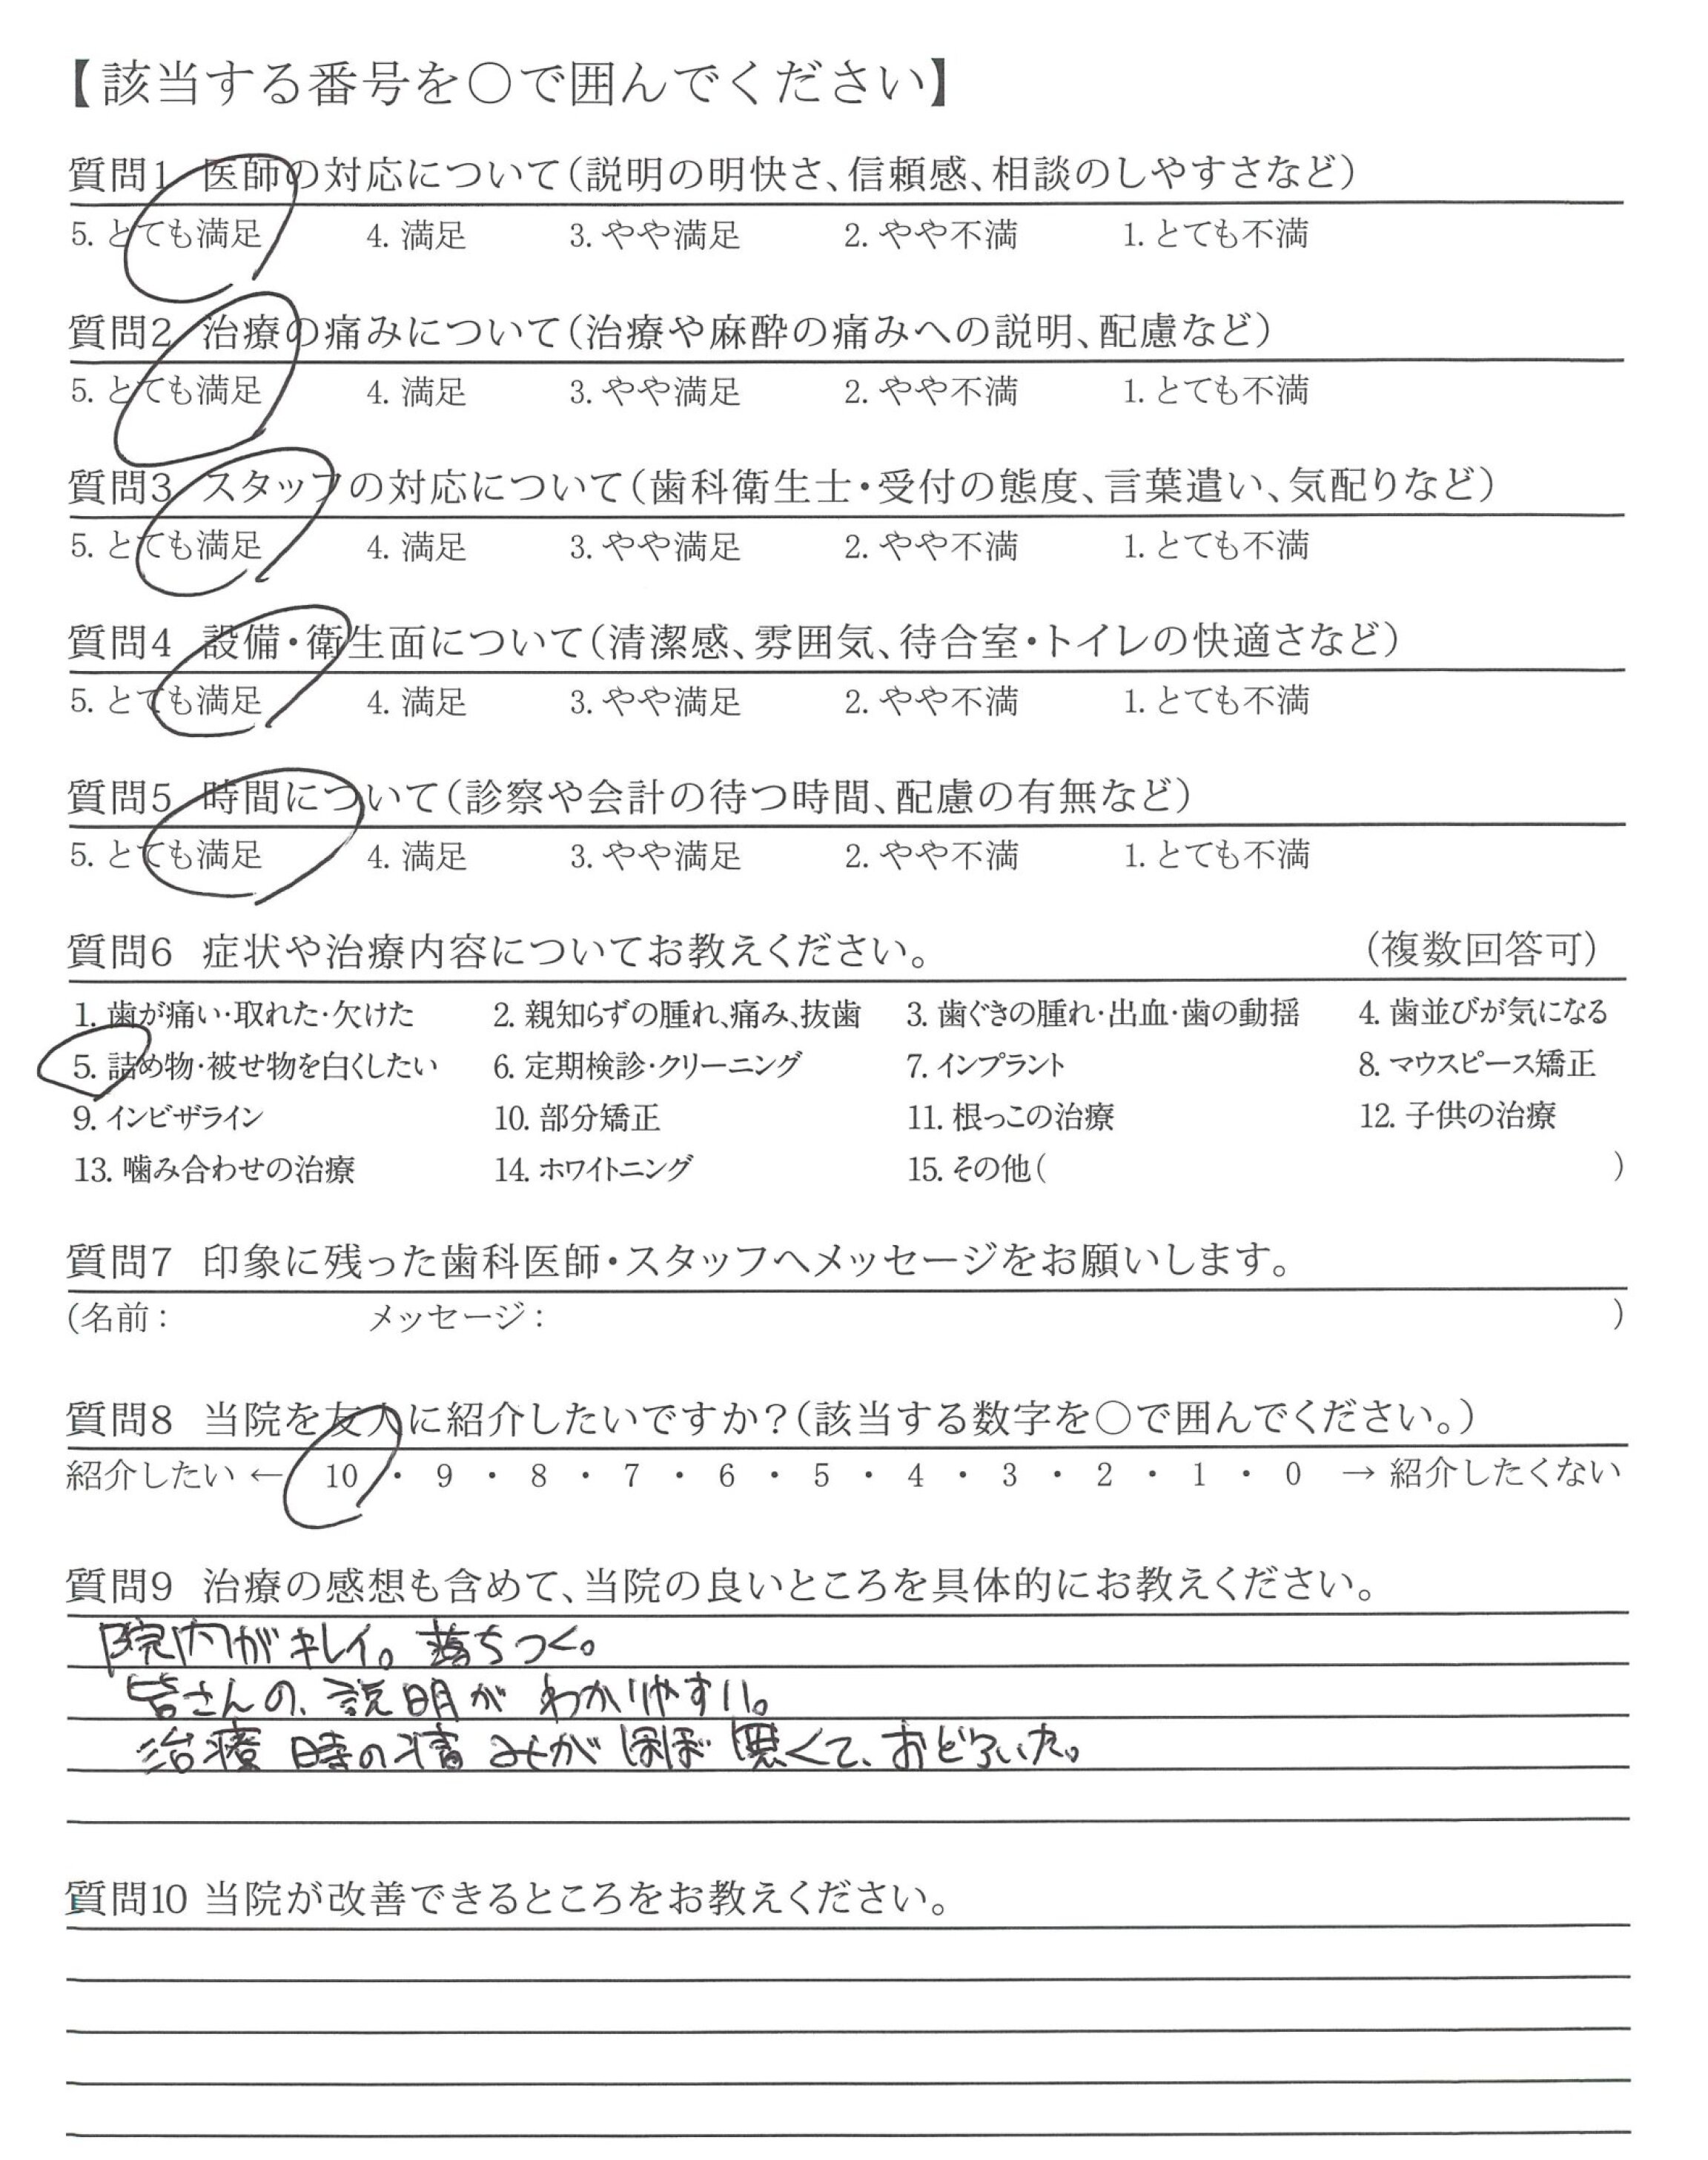 【該当する番号を○で囲んでください】
質問1 医師の対応について(説明の明快さ、信頼感、相談のしやすさなど)
5. とても満足 4. 満足 3. やや満足 2. やや不満 1. とても不満
質問2 治療の痛みについて(治療や麻酔の痛みへの説明、配慮など)
5. とても満足 4. 満足 3. やや満足 2. やや不満 1. とても不満
質問3 スタッフの対応について(歯科衛生士・受付の態度、言葉遣い、気配りなど)
5. とても満足 4. 満足 3. やや満足 2. やや不満 1. とても不満
質問4 設備・衛生面について(清潔感、雰囲気、待合室・トイレの快適さなど)
5. とても満足 4. 満足 3. やや満足 2. やや不満 1. とても不満
質問5 時間について(診察や会計の待つ時間、配慮の有無など)
5. とても満足 4. 満足 3. やや満足 2. やや不満 1. とても不満
質問6 症状や治療内容についてお教えください。 (複数回答可)
1. 歯が痛い・取れた・欠けた 2. 親知らずの腫れ、痛み、抜歯 3. 歯ぐきの腫れ・出血・歯の動揺 4. 歯並びが気になる
5. 詰め物・被せ物を白くしたい 6. 定期検診・クリーニング 7. インプラント 8. マウスピース矯正
9. インビザライン 10. 部分矯正 11. 根っこの治療 12. 子供の治療
13. 噛み合わせの治療 14. ホワイトニング 15. その他( )
質問7 印象に残った歯科医師・スタッフへメッセージをお願いします。
(名前: メッセージ: )
質問8 当院を友人に紹介したいですか?(該当する数字を○で囲んでください。)
紹介したい ← 10 ・ 9 ・ 8 ・ 7 ・ 6 ・ 5 ・ 4 ・ 3 ・ 2 ・ 1 ・ 0 → 紹介したくない
質問9 治療の感想も含めて、当院の良いところを具体的にお教えください。
院内がキレイ。落ちつく。
皆さんの、説明がわかりやすい。
治療時の痛みがほぼ無くて、おどろいた。
質問10 当院が改善できるところをお教えください。